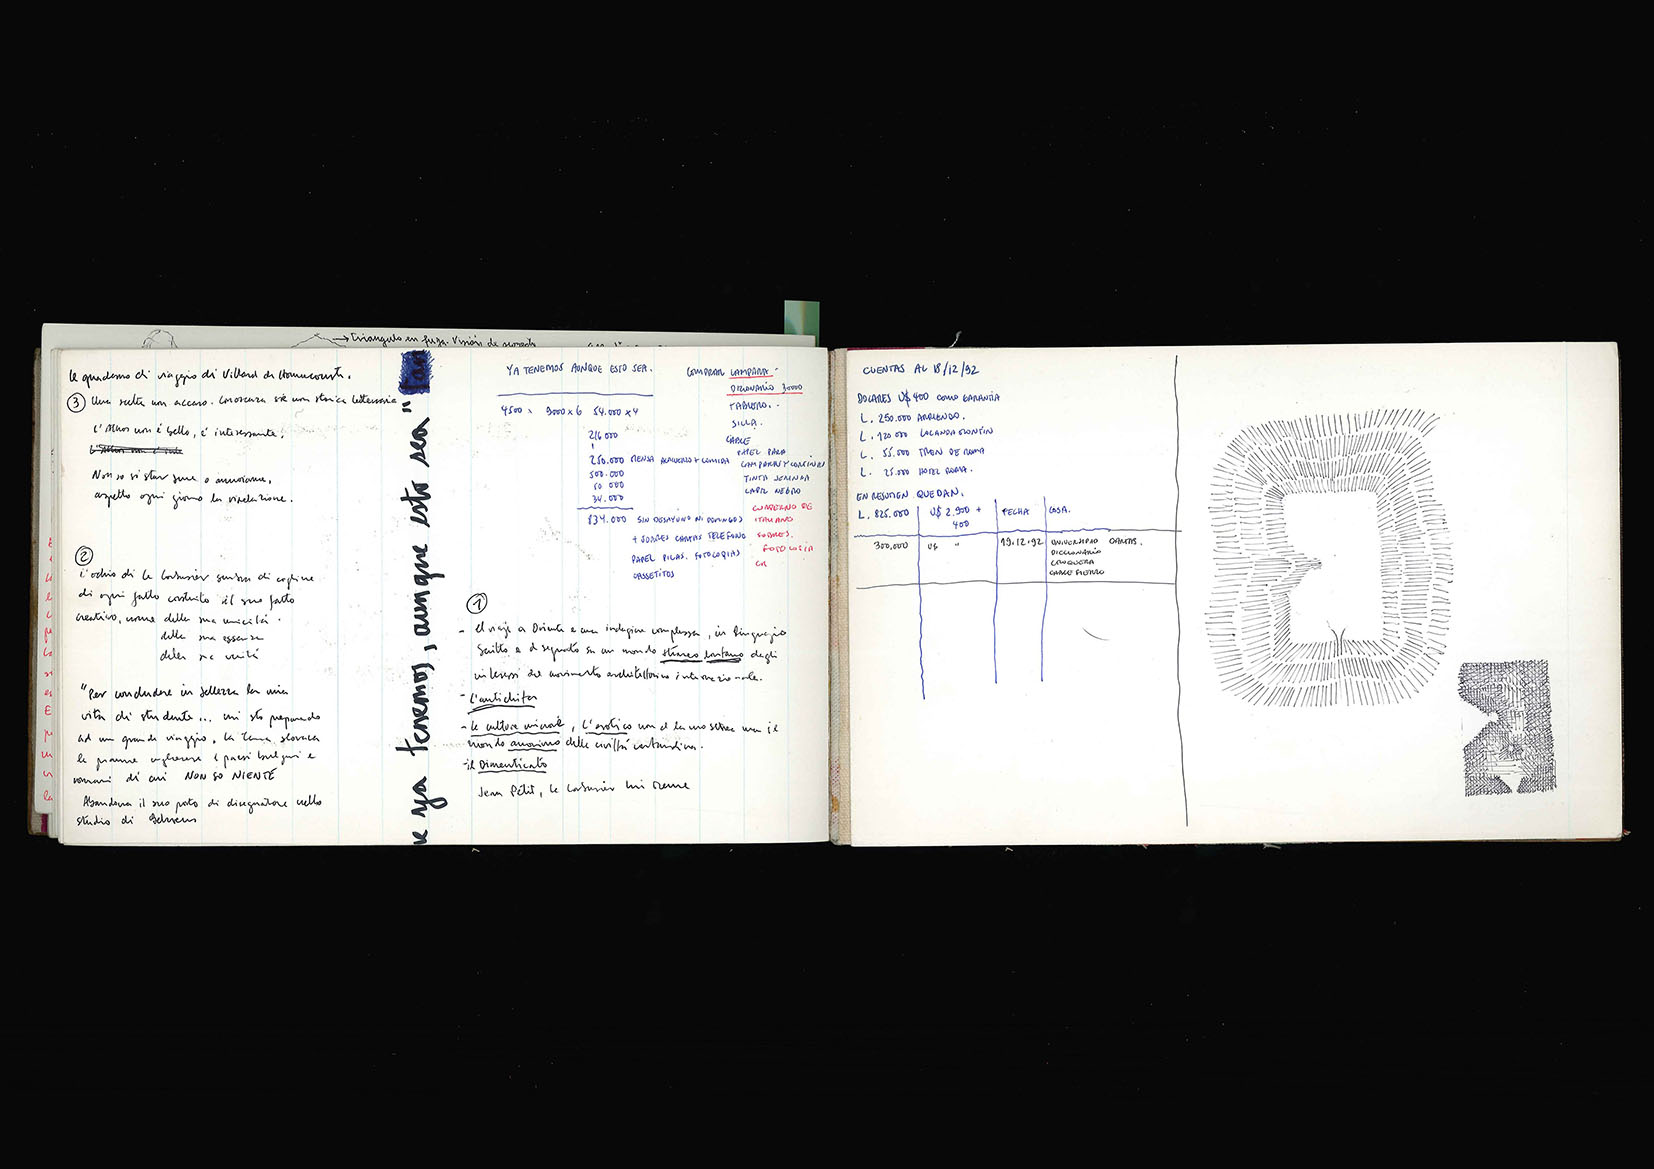 → triangulo en fuga. Visión de
le quaderno di viaggio di Villard de Honnecourt.
③ Una scelta non a caso. Conoscenza sia non storica letteraria
L' non è bello, è interessante.
Non so si star bene o annoiarme,
aspetto ogni giorno la rivelazione.
②
L'occhio di Le Corbusier di cogliere
di ogni fatto costruito il suo fatto
creativo, nome della sua unicità.
della sua essenza
della sua unità
"Per concludere in bellezza la mia
vita di studente... mi sto preparando
ad un grande viaggio, la
le pianure ungheresi i paesi bulgari e
romani di cui NON SO NIENTE
Abandona il suo posto di disegnatore nello
studio di Behrens
ya tenemos, aunque esto sea"
YA TENEMOS AUNQUE ESTO SEA.
4500 x 9000 x 6 54.000 x 4
216.000
250.000 MENSA ALMUERZO + COMIDA
500.000
50 000
34.000
834.000 SIN DESAYUNO NI DOMINGOS
+ SOBRES CARTAS TELEFONO
PAPEL PILAS. FOTOCOPIAS
CASSETITOS
COMPRAR LAMPARA
DICCIONARIO 30000
TABLERO.
SILLA.
CABLE
PAPEL PARA
CAMPARIN Y
TINTA
LAPIZ NEGRO
CUADERNO DE
ITALIANO
SOBRES.
FOTOCOPIA
①
- El viaje a Oriente è una indagine complessa, in linguaggio
scritto e disegnato su un mondo lontano degli
interessi del movimento architettonico internazionale.
- L'antichità
- le culture minori, l'esotico non è la mostra ma il
mondo anonimo delle civiltà contadina.
- il Dimenticato
Jean Petit, Le Corbusier lui meme
CUENTAS AL 18/12/92
DOLARES U$ 400 COMO GARANTIA
L. 250.000 ARRIENDO.
L. 120 000 LOCANDA MONTIN
L. 55.000 TREN DE ROMA
L. 25.000 HOTEL ROMA.
EN RESUMEN QUEDAN.
L. 825.000 U$ 2.900 + 400 FECHA COSA.
300.000 U$ " 19.12.92 UNIVERSIDAD CARTAS.
DICCIONARIO
CROQUERA
CABLE FIERRO